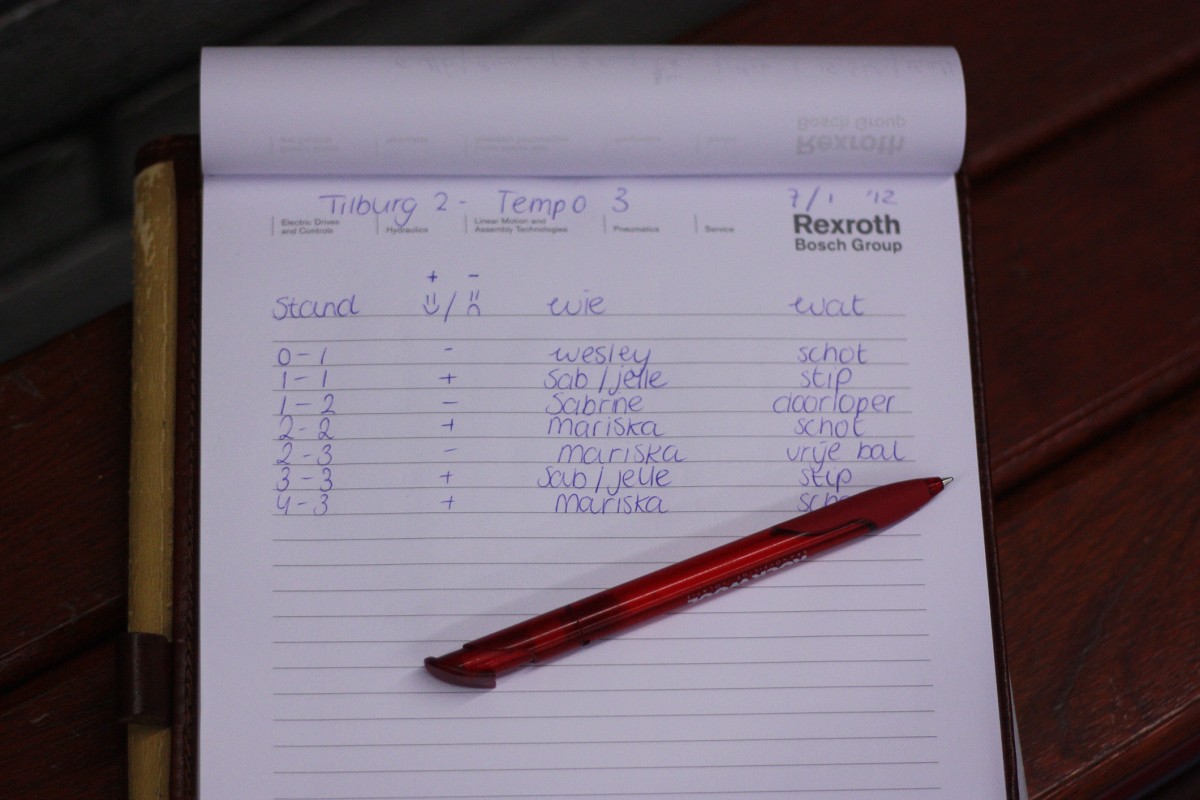 Tilburg 2 - Tempo 3 7/1 '12
Electric Drives and Controls | Hydraulics | Linear Motion and Assembly Technologies | Pneumatics | Service
Rexroth
Bosch Group
+ -
Stand / wie wat
0-1 - wesley schot
1-1 + Sab/jelle stip
1-2 - Sabrine doorloper
2-2 + Mariska schot
2-3 - Mariska vrije bal
3-3 + Sab/jelle stip
4-3 + Mariska